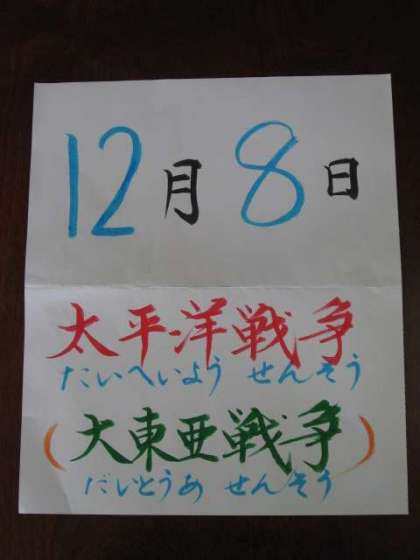 12月8日
太平洋戦争
たいへいよう せんそう
(大東亜戦争)
だいとうあ せんそう